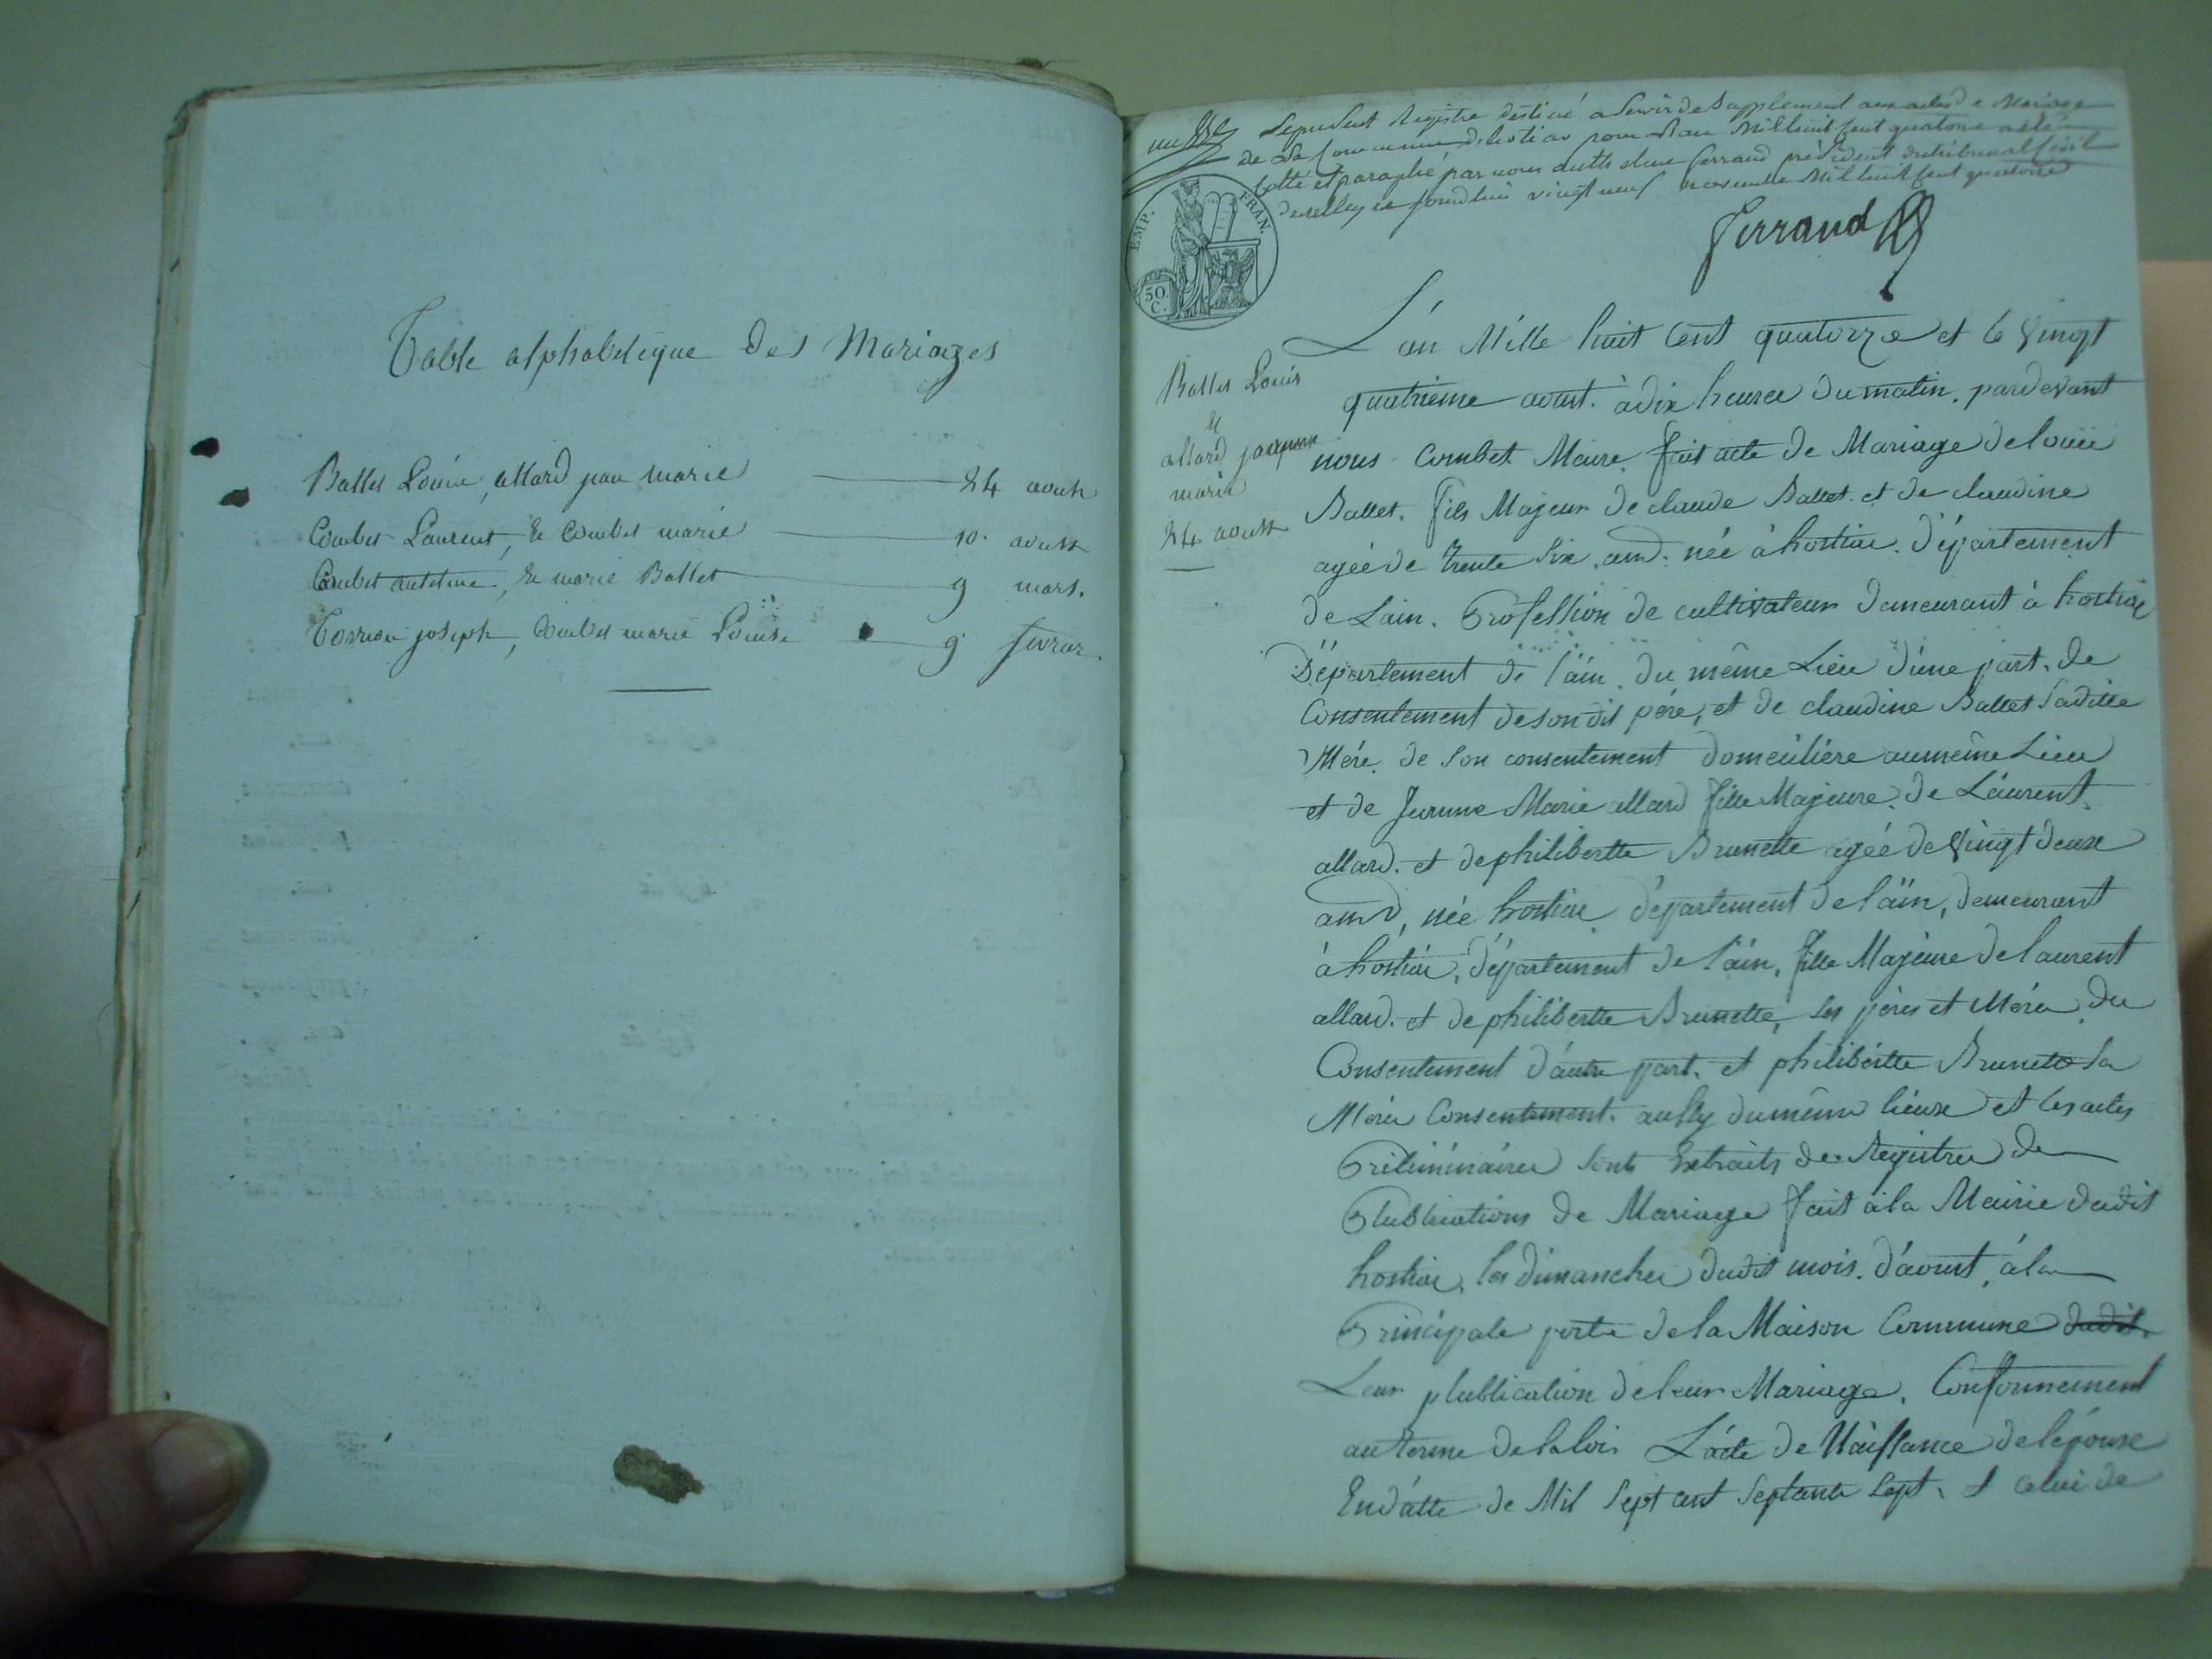 Table alphabetique des Mariages
Ballet Louis, allard jean marie 24 aout
Combet Laurent, & Combet marie 10 aoust
Combet antoine, & marie Ballet 9 mars.
joseph, Combet marie Louise 9 fevrier
Le present Registre destiné a servir de Supplement aux actes de Mariage
de la Commune d'hostiaz pour l'an Mil huit Cent quatorze a été
Cotté et paraphé par nous anthelme Ferrand président du tribunal Civil
de belley ce jourdhui vingt neuf novembre Mil huit Cent quatorze
Ferrand
EMP. FRAN.
50 C.
Ballet Louis
&
allard jeanne
marie
24 aoust
L'án Mille huit Cent quatorze et le Vingt
quatrieme aout. à dix heures du matin. pardevant
nous Combet Maire. fait acte de Mariage de louis
Ballet. fils Majeur de claude Ballet. et de claudine
agéé de trente Six. ans. née à hostiaz. Département
de Lain. Profession de cultivateur demeurant à hostiaz
Département de l'áin. du même Lieu d'une part. de
Consentement de son dit pére, et de claudine Ballet Sadite
Mére. de Son consentement domeiliére au même Lieu
et de Jeanne Marie allard fille Majeure. de Láurent
allard. et de philibertte Brunette agéé de Vingt deux
ans, née hostiaz département de l'aïn, demeurant
à hostiaz, département de l'áin, fille Majeure de laurent
allard. et de philibertte Brunette, ses péres et Méres du
Consentement d'áutre part. et philibértte Brunette Sa
Mére Consentement. aussy du même lieux et les actes
Préliminaires Sont Extraits des Registres de
Plublications de Mariage fait à la Mairie dudit
hostiaz, les dimanches dudit mois. d'áoust, à la
Principale porte de la Maison Commune dudit.
Leur plublication de leur Mariage. Conformement
au terme de la loi. L'ácte de Naissance de l'épouse
En dátte de Mil Sept cent Septante Sept. & celui de